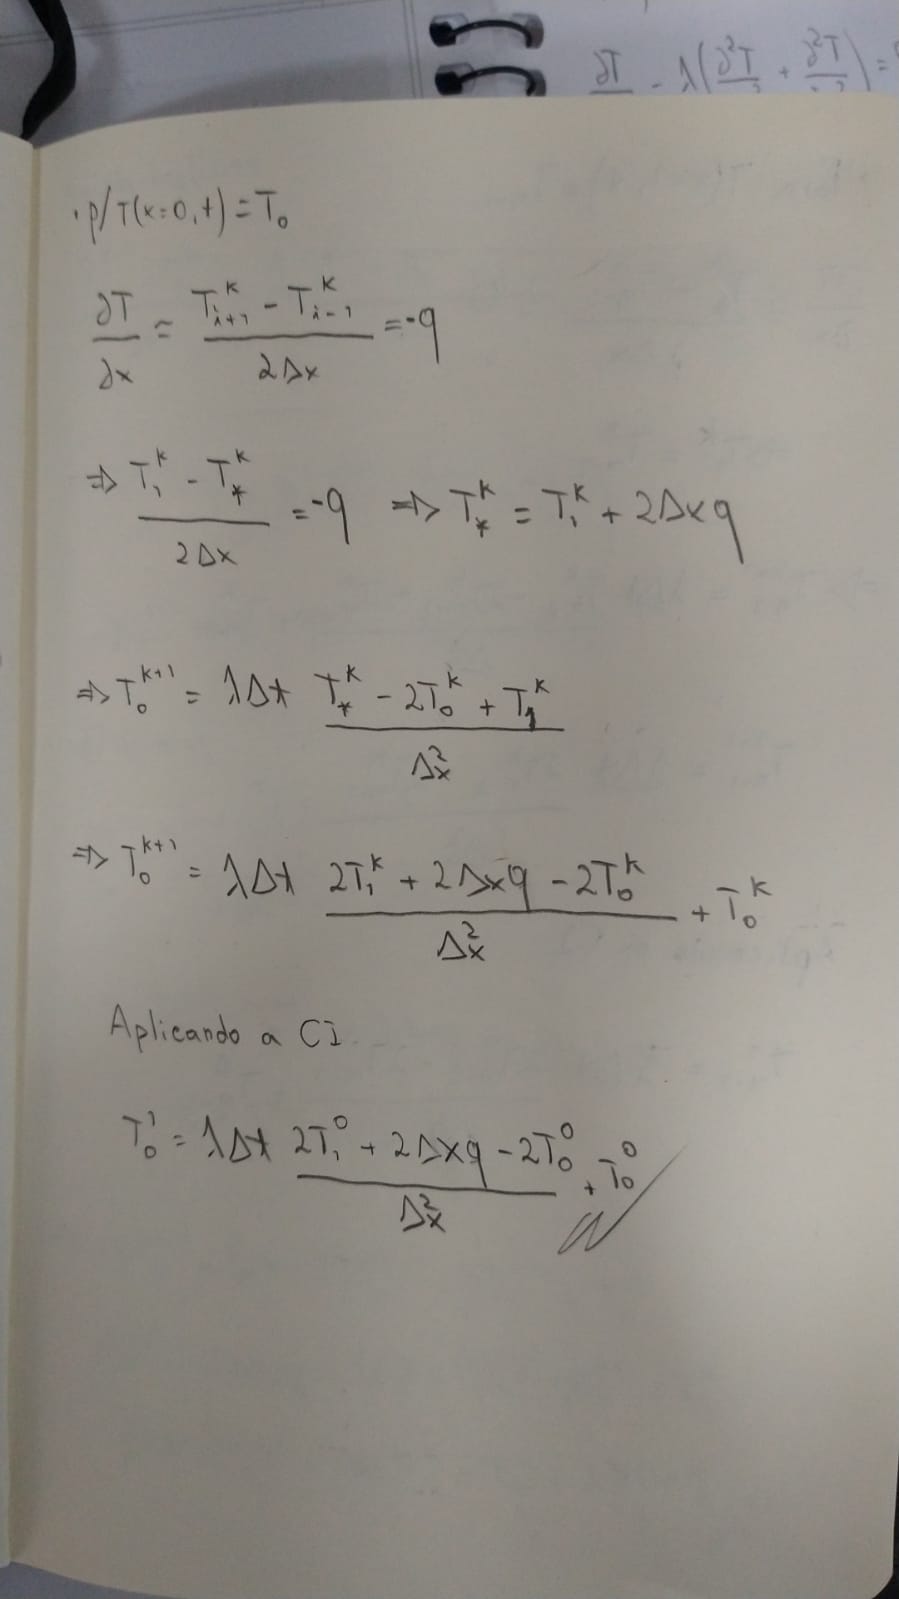 ∂T/∂ - λ(∂²T/∂ + ∂²T/∂) =
· p/ T(x=0,t) = T₀
∂T/∂x = (Tᵢ₊₁ᵏ - Tᵢ₋₁ᵏ)/(2Δx) = -q
⇒ (T₁ᵏ - T*ᵏ)/(2Δx) = -q ⇒ T*ᵏ = T₁ᵏ + 2Δxq
⇒ T₀ᵏ⁺¹ = λΔt (T*ᵏ - 2T₀ᵏ + T₁ᵏ)/(Δx²)
⇒ T₀ᵏ⁺¹ = λΔt (2T₁ᵏ + 2Δxq - 2T₀ᵏ)/(Δx²) + T₀ᵏ
Aplicando a CI
T₀¹ = λΔt (2T₁⁰ + 2Δxq - 2T₀⁰)/(Δx²) + T₀⁰